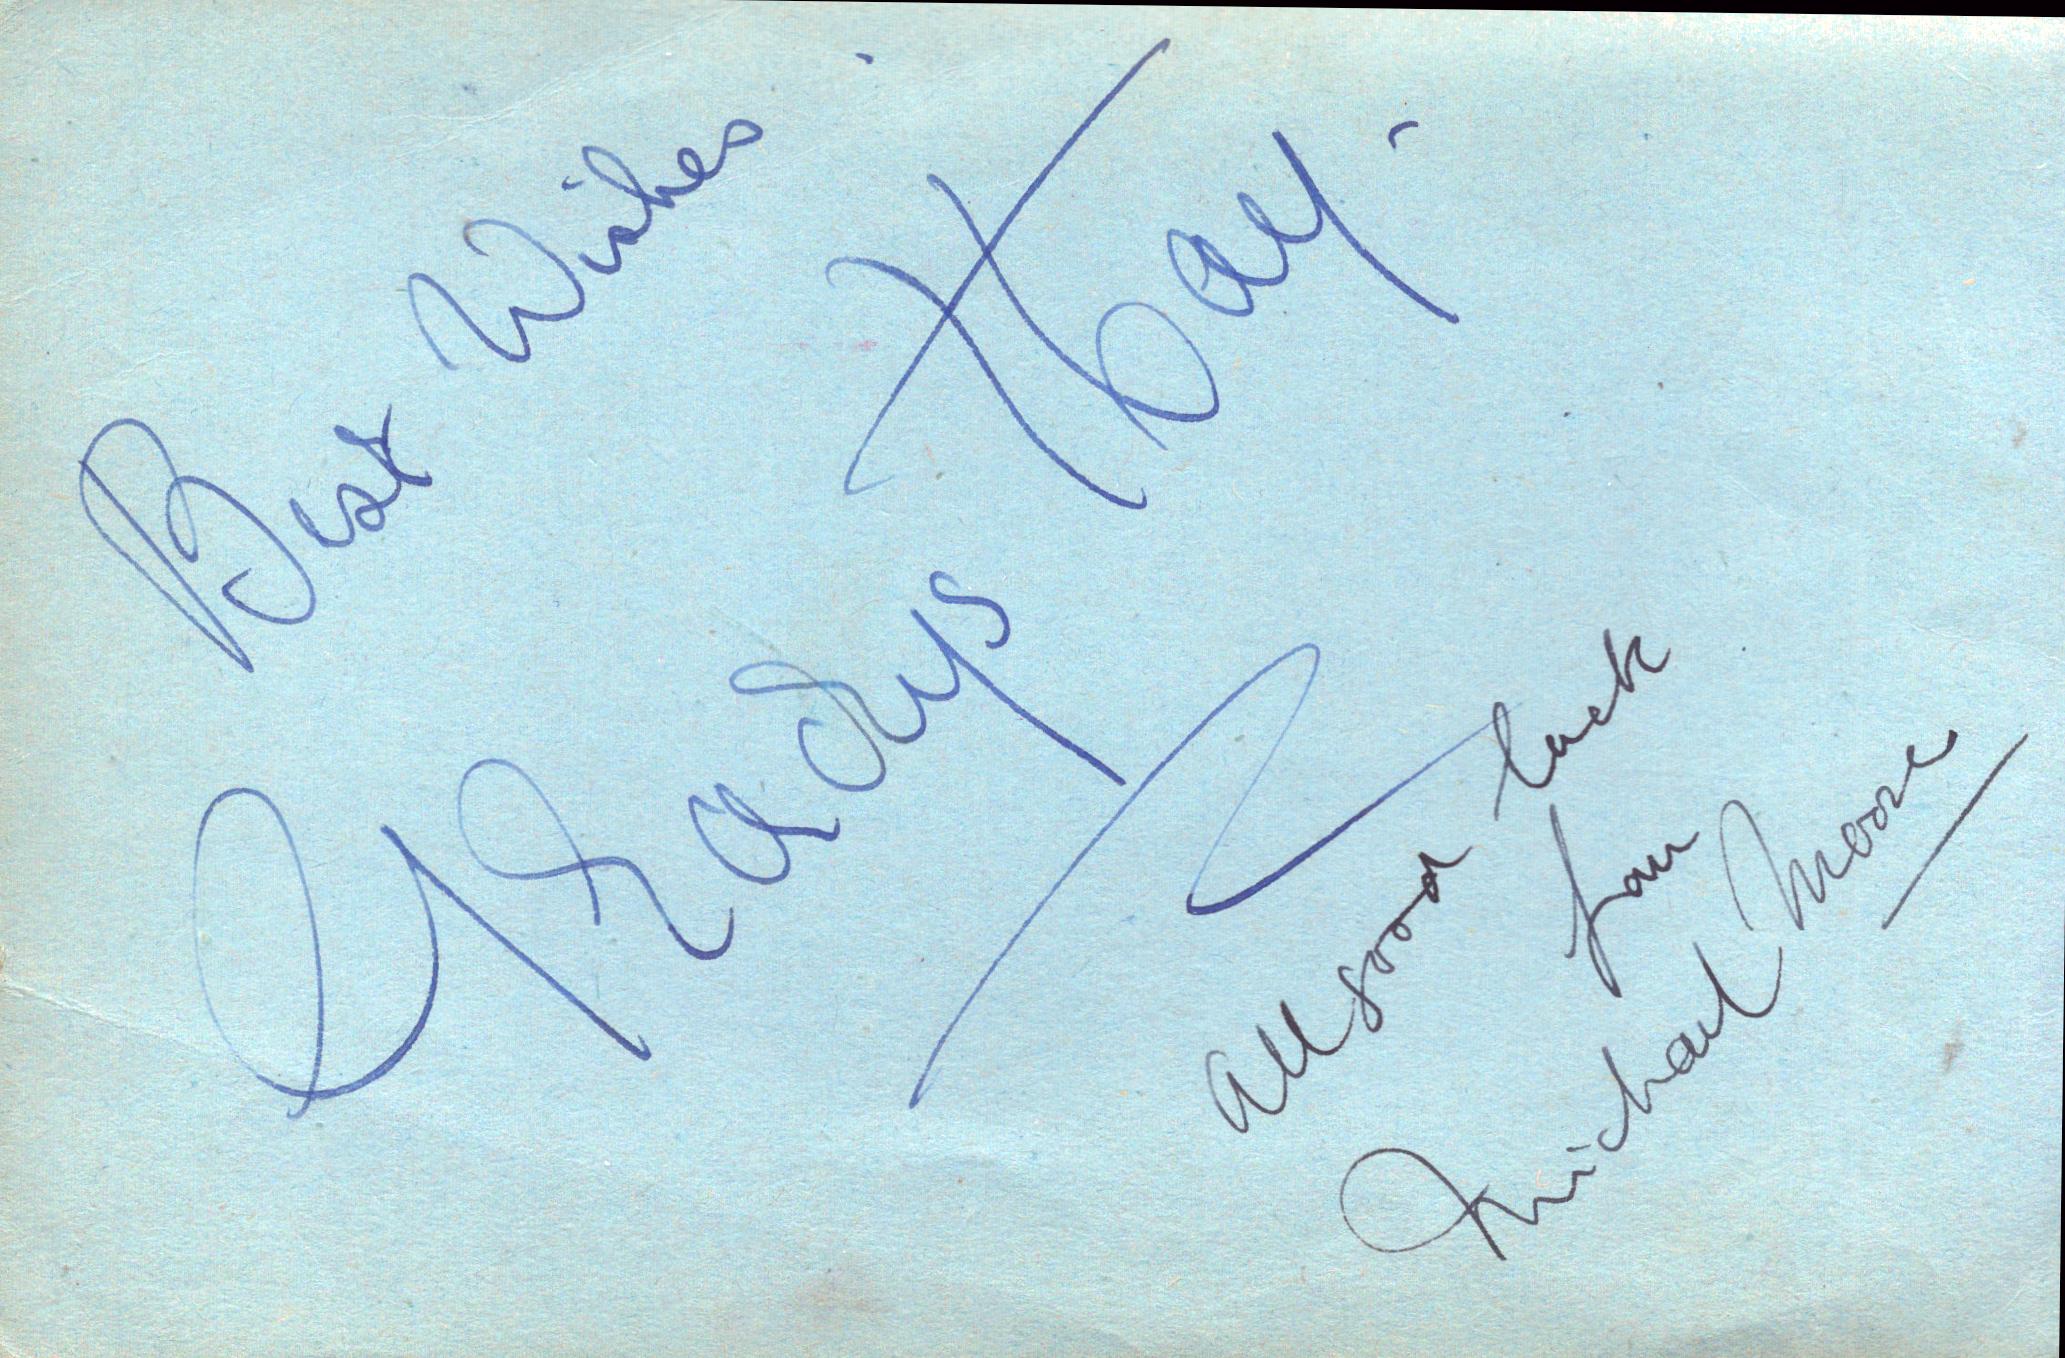 Best Wishes
Gladys Hay.
All good luck
from
Michael Moore